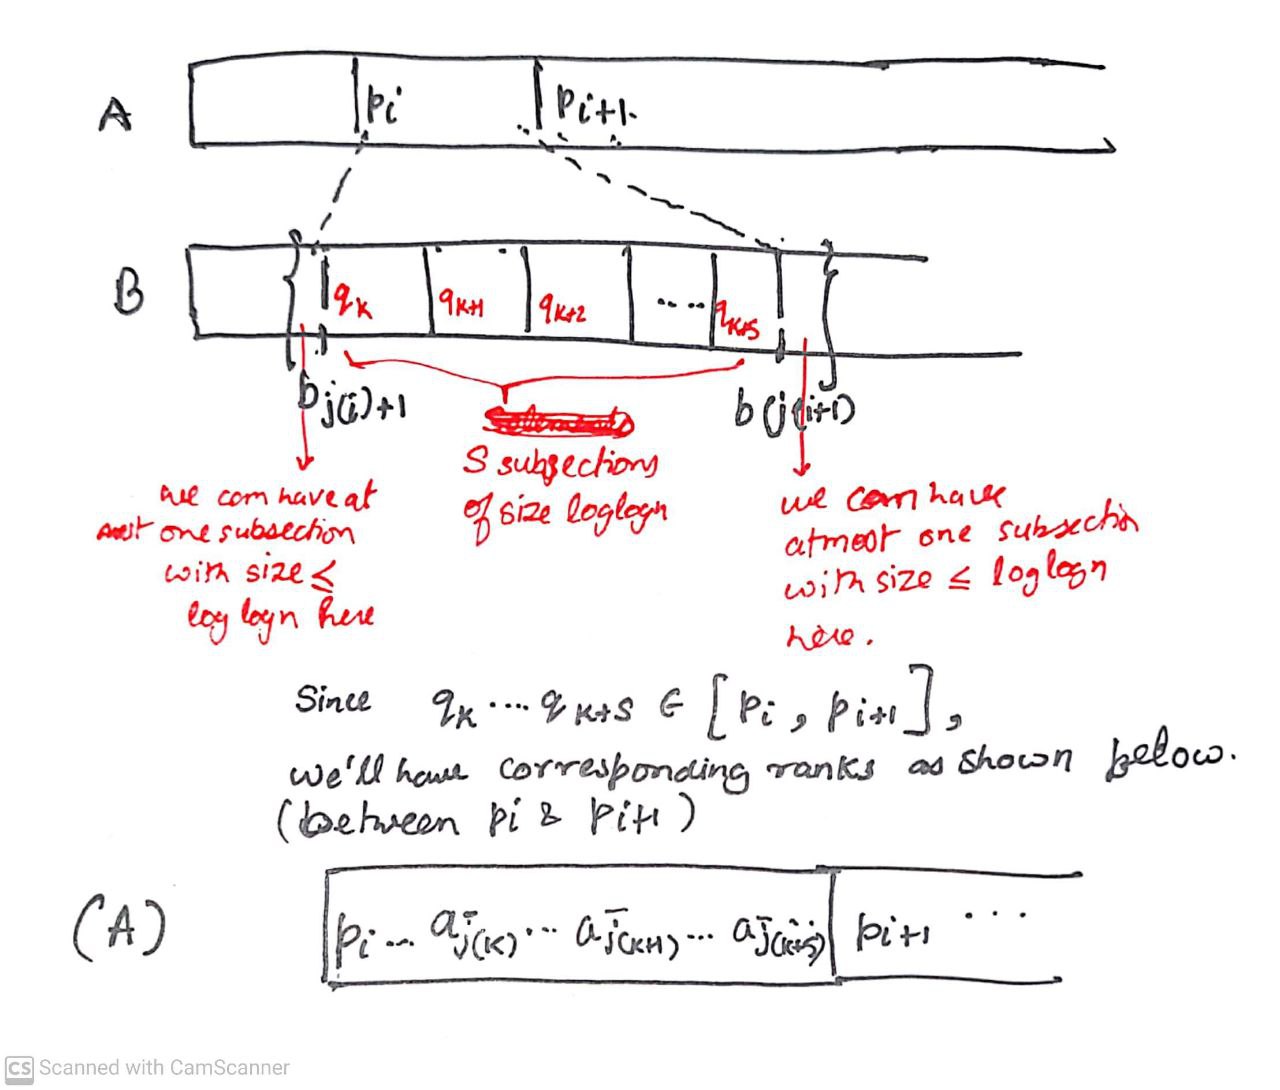 A
pi
pi+1.
B
qK
qK+1
qK+2
....
qK+S
bj(i)+1
b(j(i+1)
S subsections
of size loglogn
we can have at
most one subsection
with size ≤
log logn here
we can have
atmost one subsection
with size ≤ loglogn
here.
Since qK .... qK+S ∈ [pi, pi+1],
we'll have corresponding ranks as shown below.
(between pi & pi+1)
(A)
pi ... aj̄(K) ... aj̄(K+1) ... aj̄(K+S)
pi+1 ...
CS Scanned with CamScanner